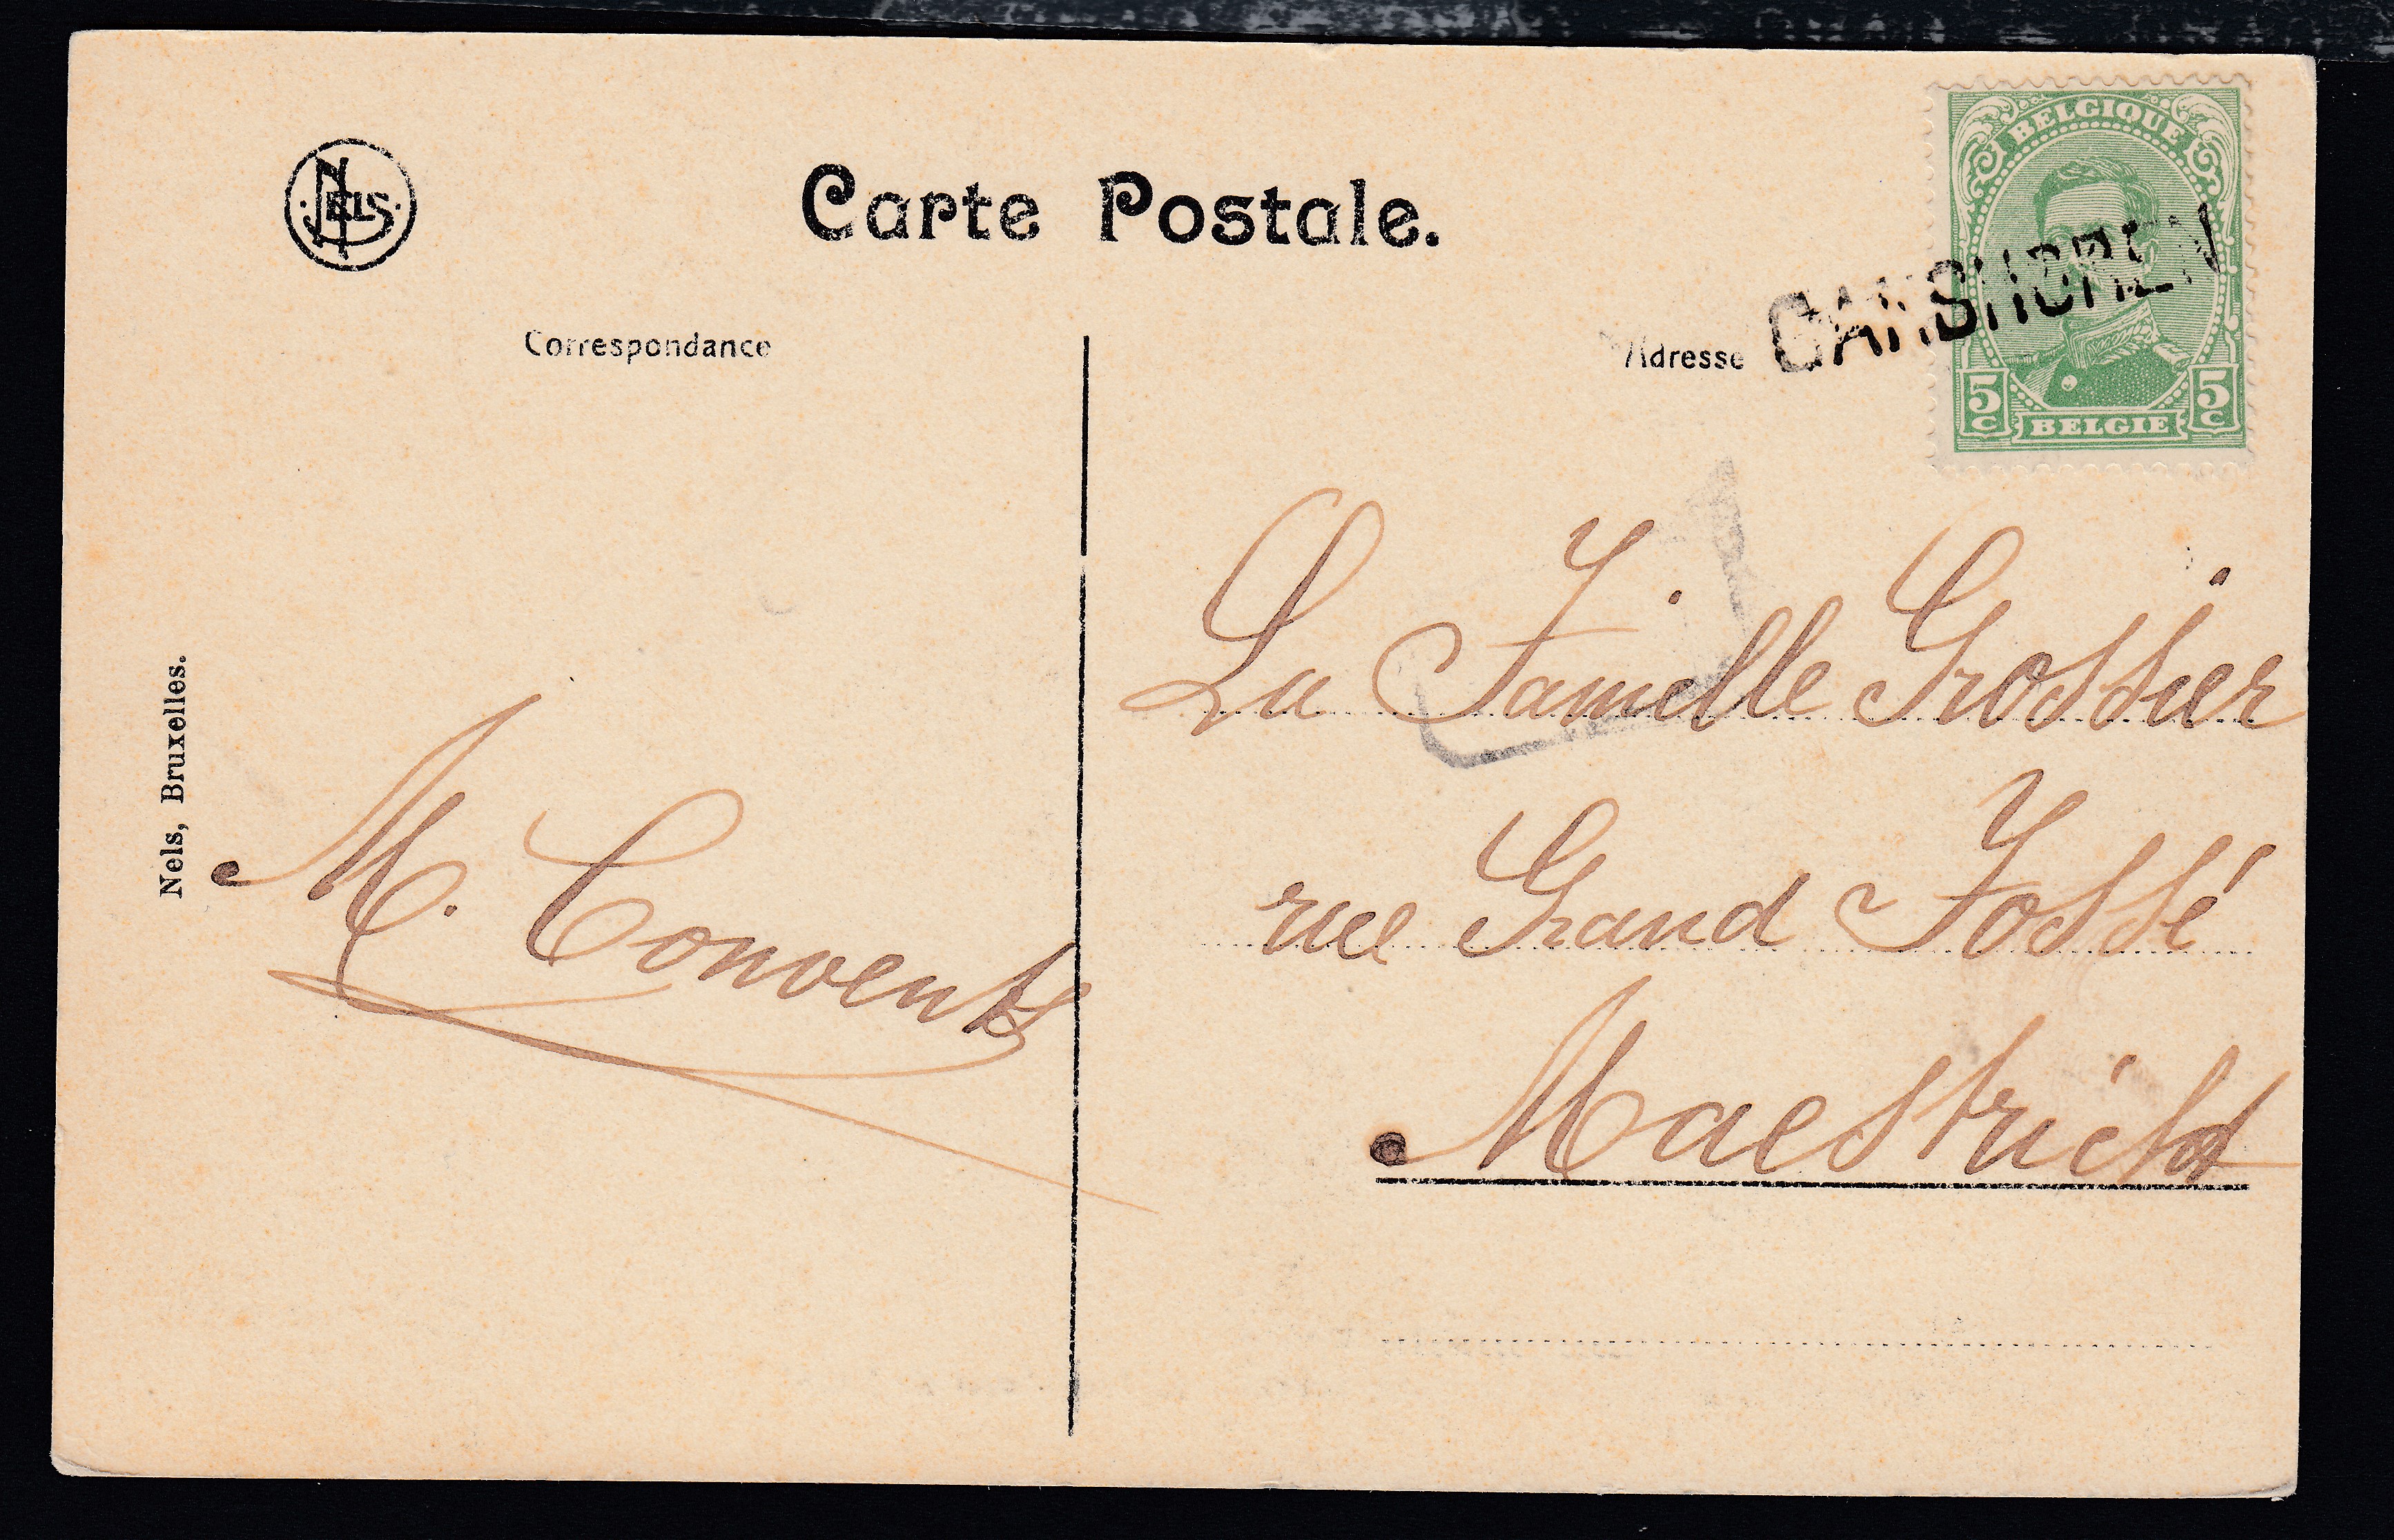 NELS
Carte Postale.
BELGIQUE
GANSHOREN
Correspondance
Adresse
5 c BELGIË 5 c
La Famille Grossier
rue Grand Fossé
Maestricht
M. Convents
Nels, Bruxelles.